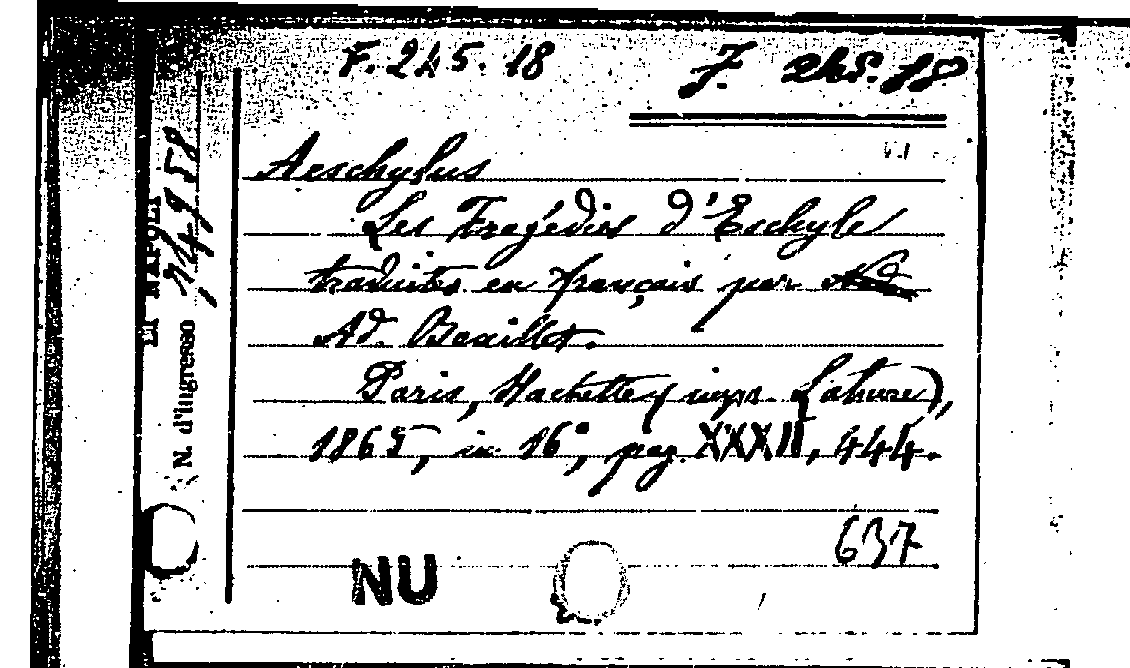 F. 245. 18 F. 245. 18
Aeschylus
Les Tragédies d'Eschyle
traduites en français par
Ad. Bouillet.
Paris, Hachette (imp. Lahure),
1865, in 16°, pag. XXXII, 444.
637
NU
DI NAPOLI
N. d'ingresso 14958